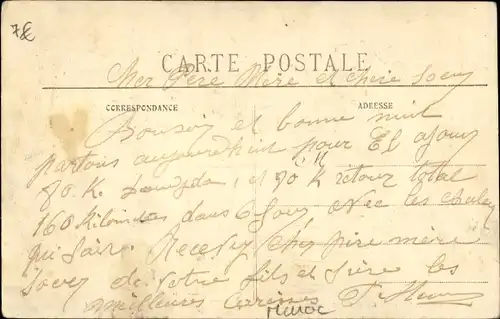 7€
CARTE POSTALE
Cher Père Mère et chère Soeur
CORRESPONDANCE
ADRESSE
Bonsoir et bonne nuit
partons aujourd'hui pour El ajoun
80 K. et 70 K retour total
160 Kilomètres dans 6 jours avec les chaleurs
qui faire. Recevez cher père mère
soeur de votre fils et frère les
meilleures
Maroc